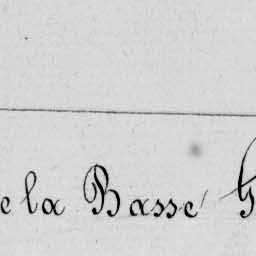 e la Basse